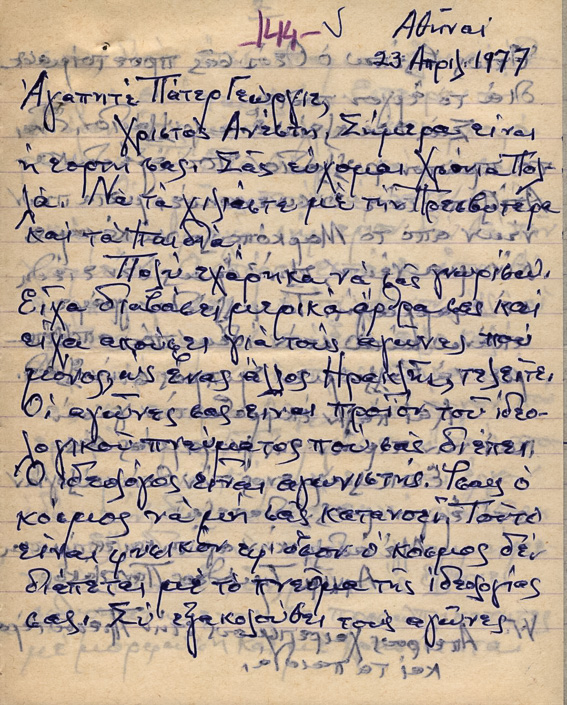 -144-
Ἀθῆναι
23 Ἀπριλ. 1977
Ἀγαπητὲ Πάτερ Γεώργιε,
Χριστὸς Ἀνέστη. Σήμερα εἶναι
ἡ ἑορτή σας. Σᾶς εὔχομαι Χρόνια Πολ-
λά. Νὰ τὰ χιλιάσετε μὲ τὴν Πρεσβυτέρα
καὶ τὰ παιδιά.
Πολὺ ἐχάρηκα νὰ σᾶς γνωρίσω.
Εἶχα διαβάσει μερικὰ ἄρθρα σας καὶ
εἶχα ἀκούσει γιὰ τοὺς ἀγῶνες ποὺ
μόνος, ὡς ἕνας ἄλλος Ἡρακλῆς, τελεῖτε.
Οἱ ἀγῶνες σας εἶναι προϊὸν τοῦ ἰδεο-
λογικοῦ πνεύματος ποὺ σᾶς διέπει.
Ὁ ἰδεολόγος εἶναι ἀγωνιστής. Ἴσως ὁ
κόσμος νὰ μὴ σᾶς κατανοεῖ. Τοῦτο
εἶναι φυσικὸν ἐφ' ὅσον ὁ κόσμος δὲν
διέπεται μὲ τὸ πνεῦμα τῆς ἰδεολογίας
σας. Σὺ ἐξακολούθει τοὺς ἀγῶνες